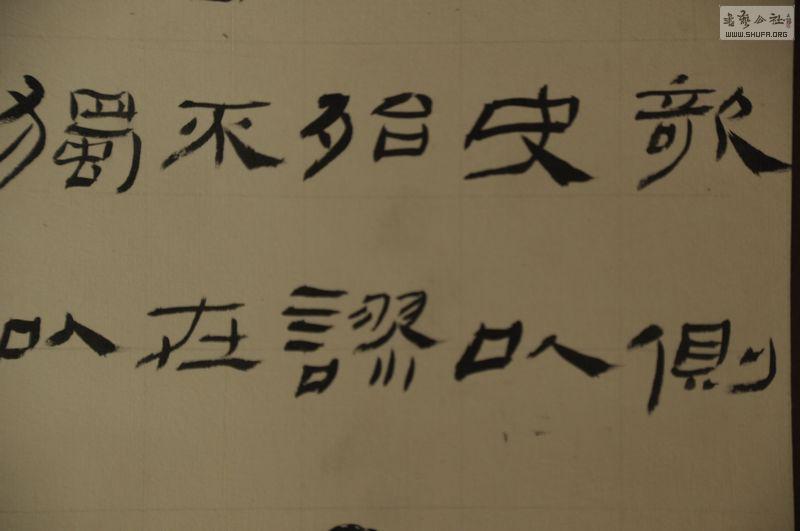 欹側
史以
殆謬
不在
獨以
書藝公社
WWW.SHUFA.ORG